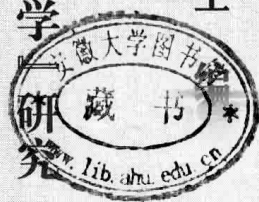 学』研究
安徽大学图书馆
藏书
*
www.lib.ahu.edu.cn